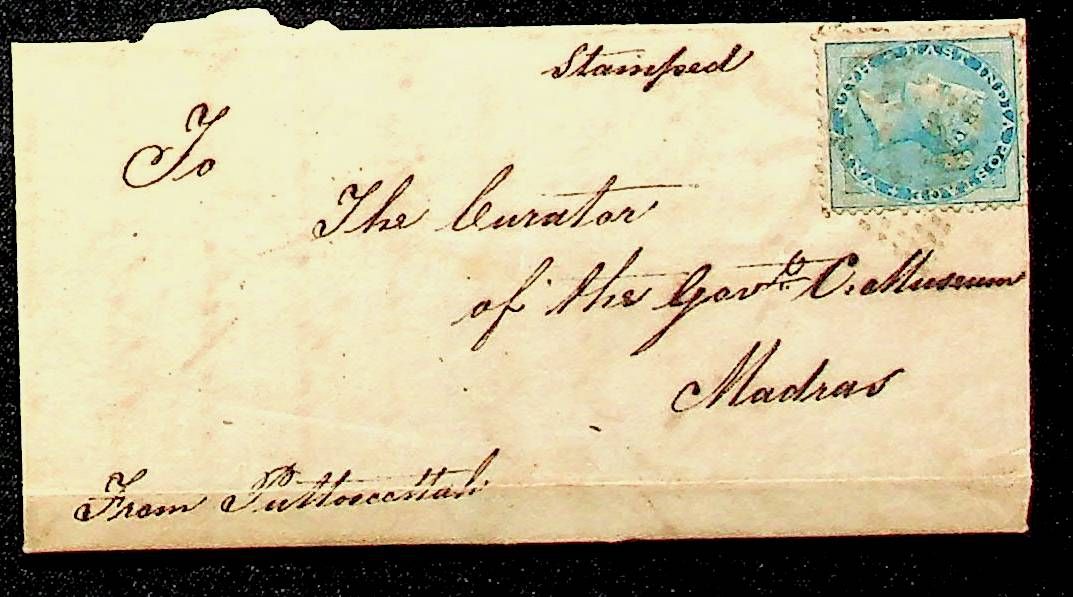 Stamped
EAST INDIA POSTAGE
To
The Curator
of the Govt. C. Museum
Madras
From Puttoocottah